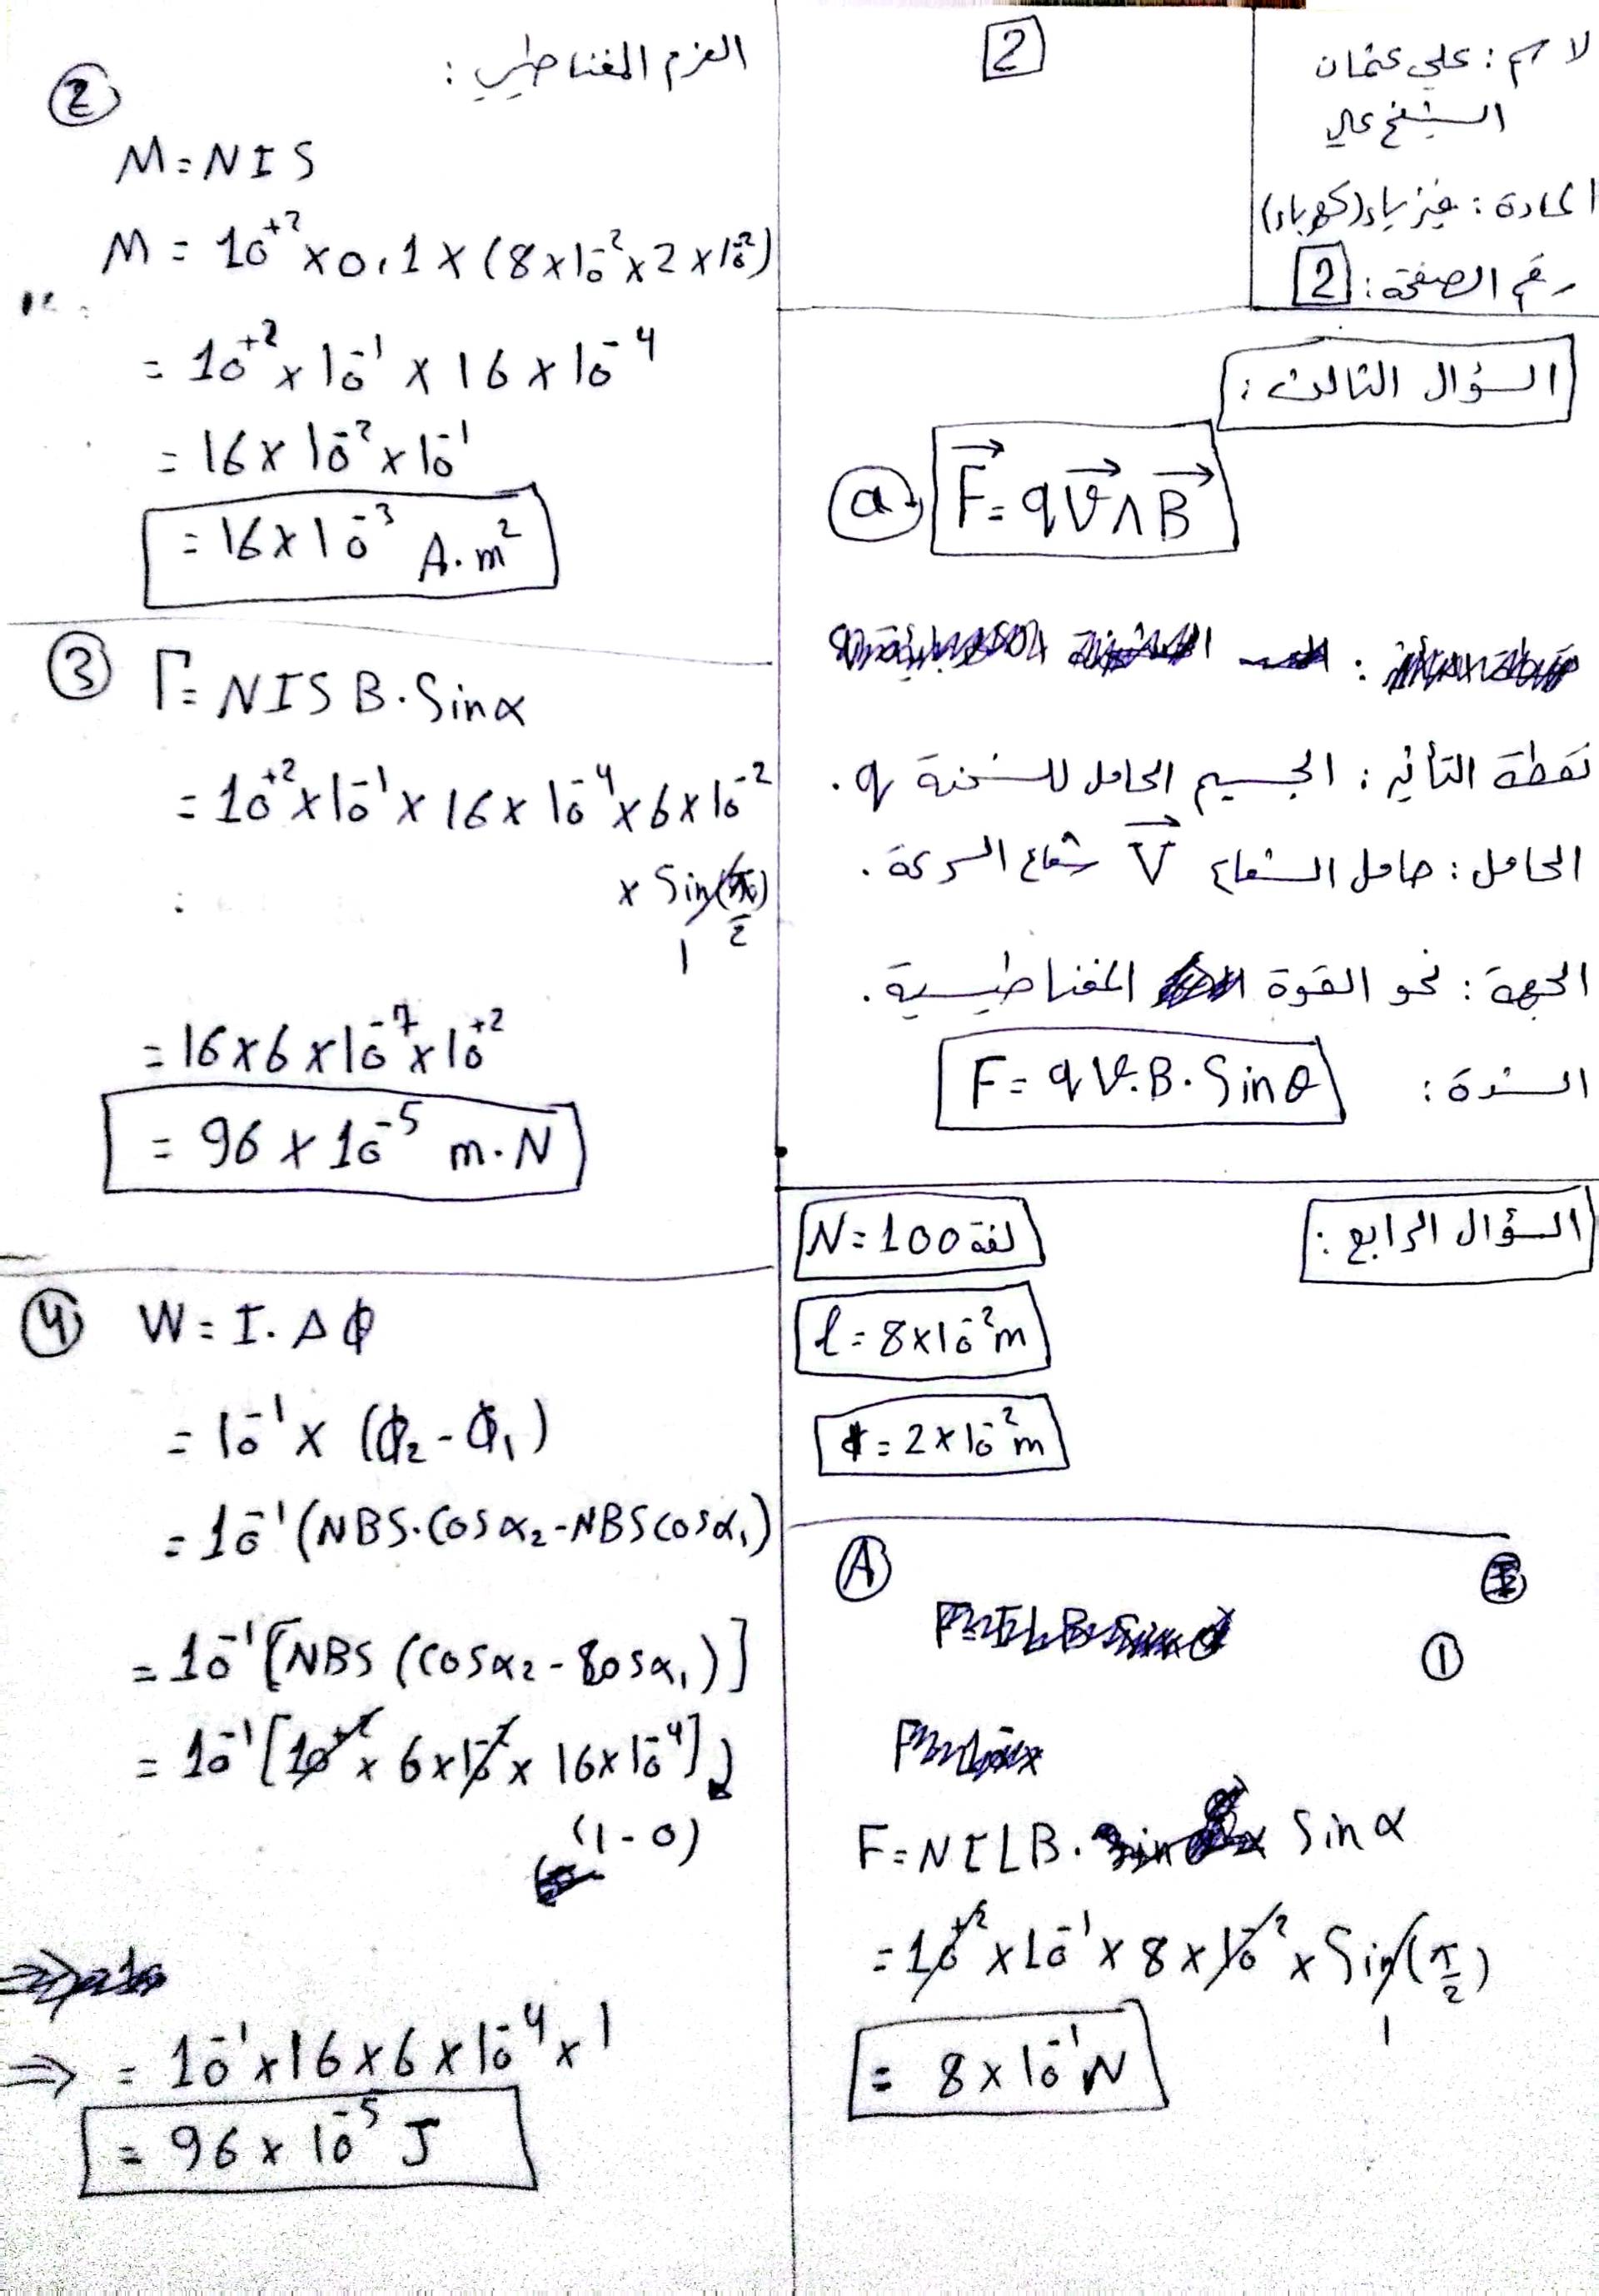 الاسم : علي عثمان
الشيخ عالي
المادة : فيزياء (كهرباء)
رقم الصفحة : 2
2
السؤال الثالث :
a F = qV ∧ B
نقطة التأثير : الجسيم الحامل للشحنة q .
الحامل : حامل الشعاع V شعاع السرعة .
الجهة : نحو القوة المغناطيسية .
الشدة : F = qV.B.Sinθ
السؤال الرابع :
N = 100 لفة
l = 8 × 10⁻² m
= 2 × 10⁻² m
A
1
F = NILB. Sin α
= 10⁺² × 10⁻¹ × 8 × 10⁻² × Sin(π/2)
1
= 8 × 10⁻¹ N
2 العزم المغناطيسي :
M = NIS
M = 10⁺² × 0,1 × (8 × 10⁻² × 2 × 10⁻²)
= 10⁺² × 10⁻¹ × 16 × 10⁻⁴
= 16 × 10⁻² × 10⁻¹
= 16 × 10⁻³ A.m²
3 Γ = NISB.Sin α
= 10⁺² × 10⁻¹ × 16 × 10⁻⁴ × 6 × 10⁻²
× Sin(π/2)
1
= 16 × 6 × 10⁻⁷ × 10⁺²
= 96 × 10⁻⁵ m.N
4 W = I.Δϕ
= 10⁻¹ × (ϕ₂ - ϕ₁)
= 10⁻¹ (NBS.Cos α₂ - NBS cos α₁)
= 10⁻¹ [NBS (cos α₂ - cos α₁)]
= 10⁻¹ [10⁺² × 6 × 10⁻² × 16 × 10⁻⁴]
(1 - 0)
⇒ = 10⁻¹ × 16 × 6 × 10⁻⁴ × 1
= 96 × 10⁻⁵ J